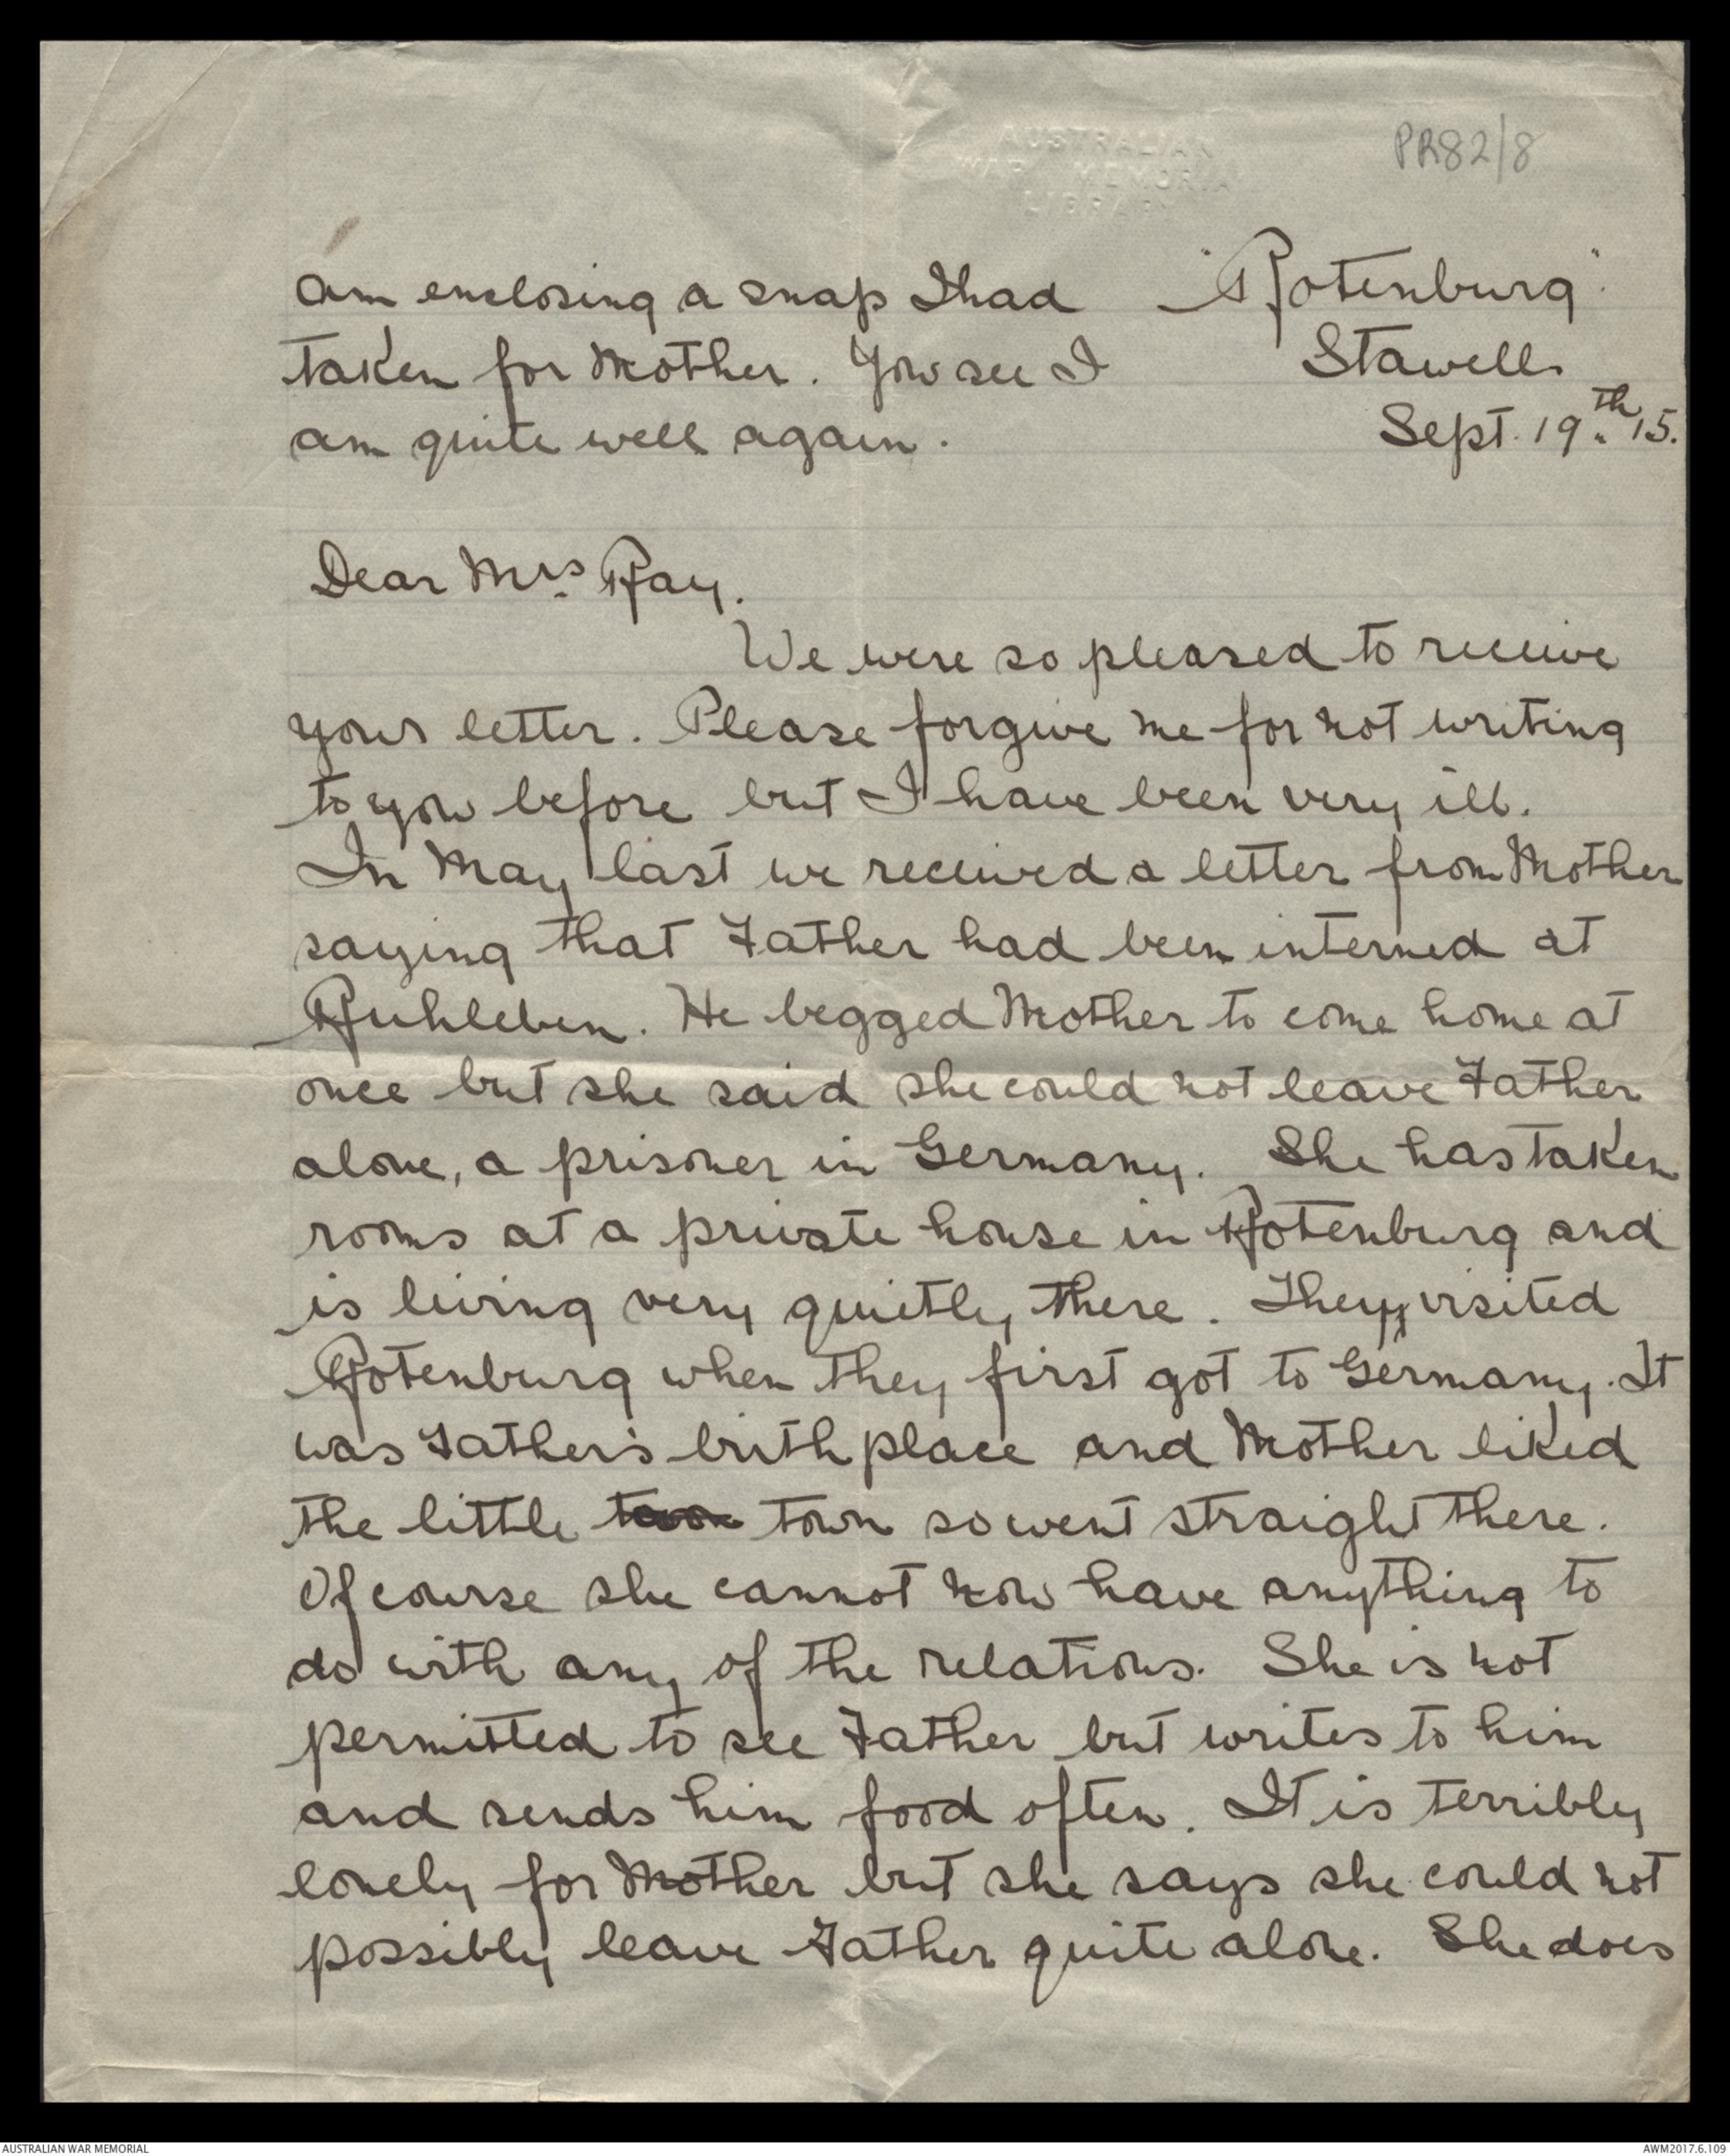 AUSTRALIAN
WAR MEMORIAL
LIBRARY
PR82/8
am enclosing a snap I had
taken for Mother. You see I
am quite well again.
"Rotenburg"
Stawell.
Sept. 19th 15.
Dear Mrs Ray.
We were so pleased to receive
your letter. Please forgive me for not writing
to you before but I have been very ill.
In May last we received a letter from Mother
saying that Father had been interned at
Ruhleben. He begged Mother to come home at
once but she said she could not leave Father
alone, a prisoner in Germany. She has taken
rooms at a private house in Rotenburg and
is living very quietly there. They visited
Rotenburg when they first got to Germany. It
was Father's birth place and Mother liked
the little town so went straight there.
Of course she cannot now have anything to
do with any of the relations. She is not
permitted to see Father but writes to him
and sends him food often. It is terribly
lonely for Mother but she says she could not
possibly leave Father quite alone. She does
AUSTRALIAN WAR MEMORIAL
AWM2017.6.109